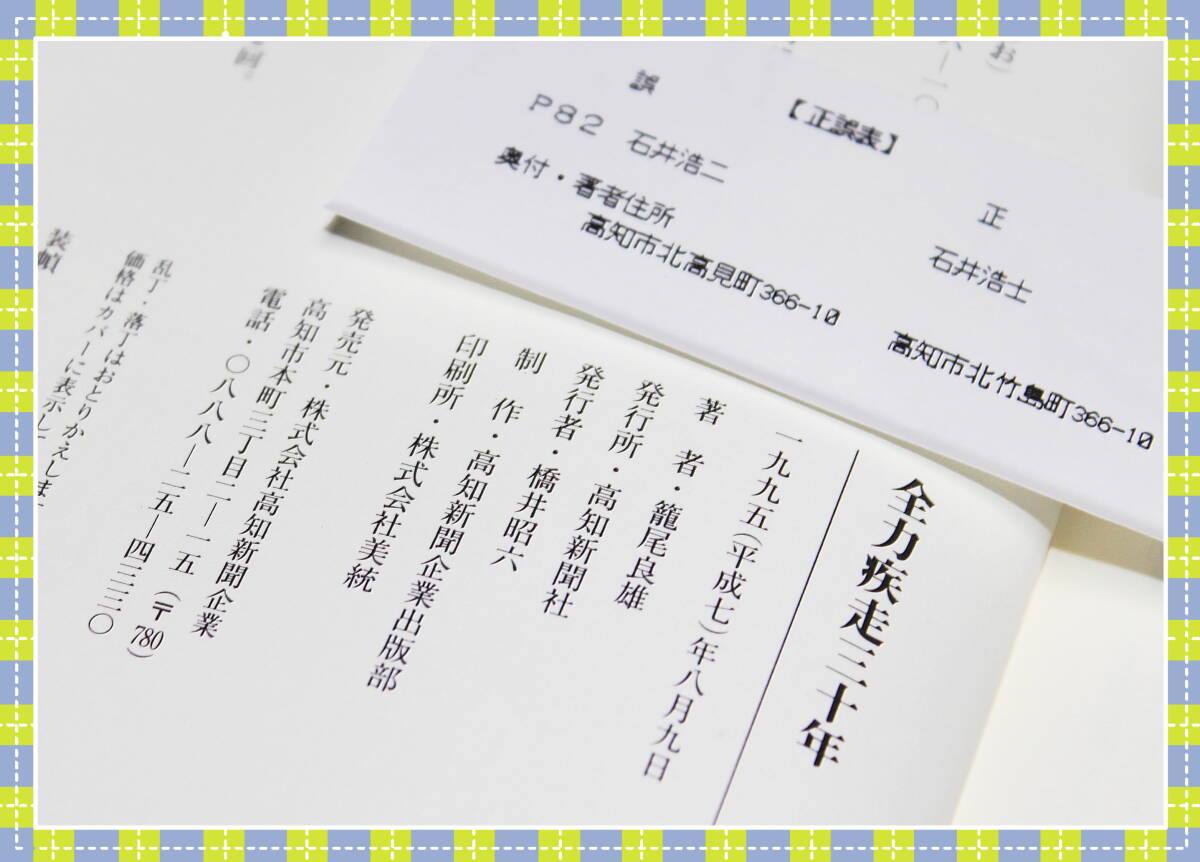 【正誤表】
誤
正
P82 石井浩二
石井浩士
奥付・著者住所
高知市北高見町366-10
高知市北竹島町366-10
全力疾走三十年
一九九五(平成七)年八月九日
著 者・籠尾良雄
発行所・高知新聞社
発行者・橋井昭六
制 作・高知新聞企業出版部
印刷所・株式会社美統
発売元・株式会社高知新聞企業
高知市本町三丁目二―一五(〒780)
電話・〇八八八―二五―四三三〇
乱丁・落丁はおとりかえします
価格はカバーに表示して
装幀